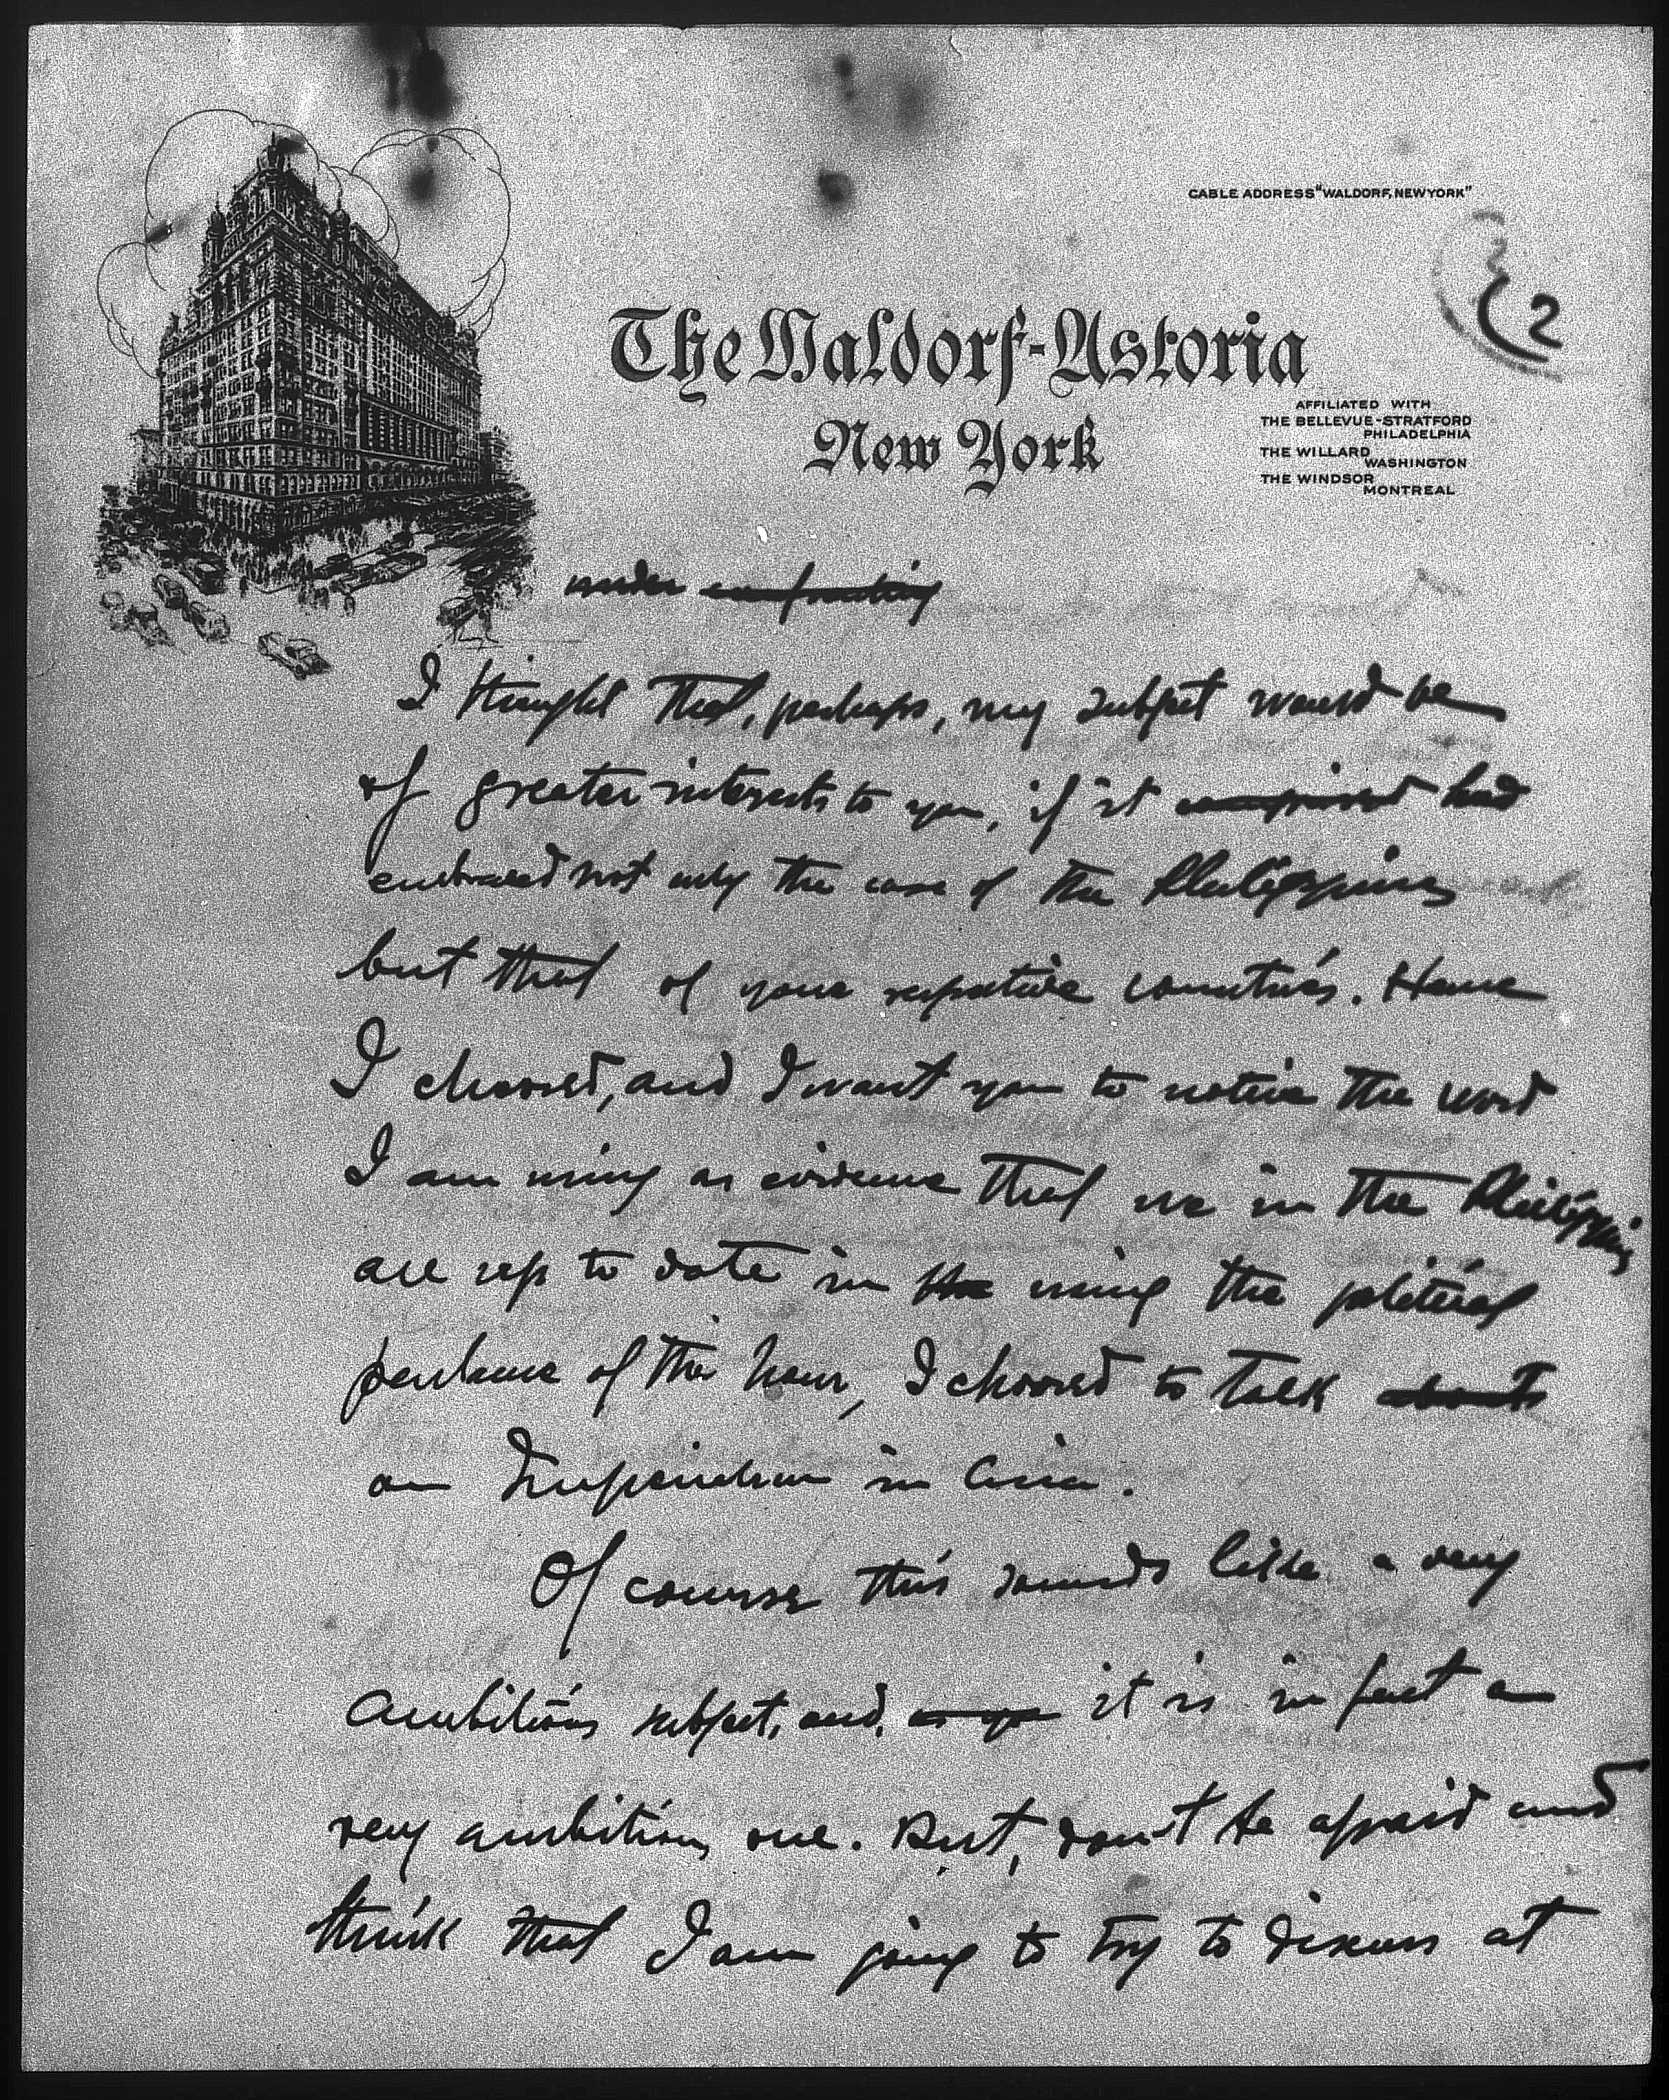 CABLE ADDRESS "WALDORF, NEWYORK"
2
2
The Waldorf-Astoria
New York
AFFILIATED WITH
THE BELLEVUE-STRATFORD
PHILADELPHIA
THE WILLARD
WASHINGTON
THE WINDSOR
MONTREAL
under
I thought that, perhaps, my subject would be
of greater interests to you, if it comprised had
embraced not only the case of the Philippines
but that of your respective countries. Hence
I choosed, and I want you to notice the word
I am using as evidence that we in the Philippines
are up to date in the using the political
parlance of the hour, I choosed to talk about
on Imperialism in Asia.
Of course this sounds like a very
ambitious subject, and, as you it is in fact a
very ambitious one. But, don't be afraid and
think that I am going to try to discuss at